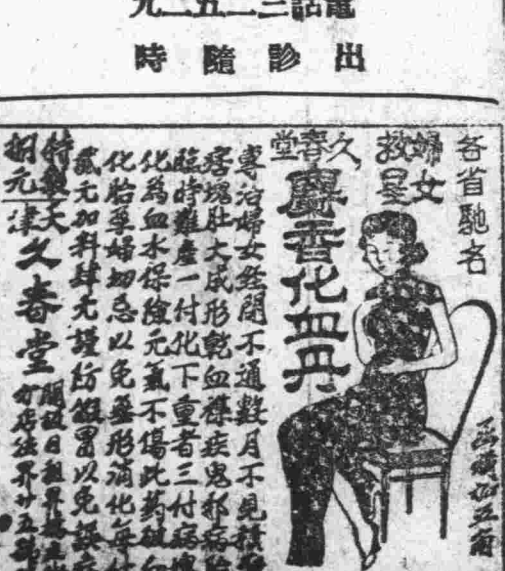 電話三二五二九
出診隨時
各省馳名
婦女
救星
久春堂
麝香化血丹
專治婦女經閉不通數月不見積
痞塊肚大成形乾血癆疾鬼邪病
臨時難產一付化下重者三付病塊
化為血水保險元氣不傷此藥破血
化胎孕婦切忌以免無形消化每付
貳元加料肆元謹防假冒以免誤
特製
捌元
天津久春堂
開設日租界
分店法界廿五號
函購加五角